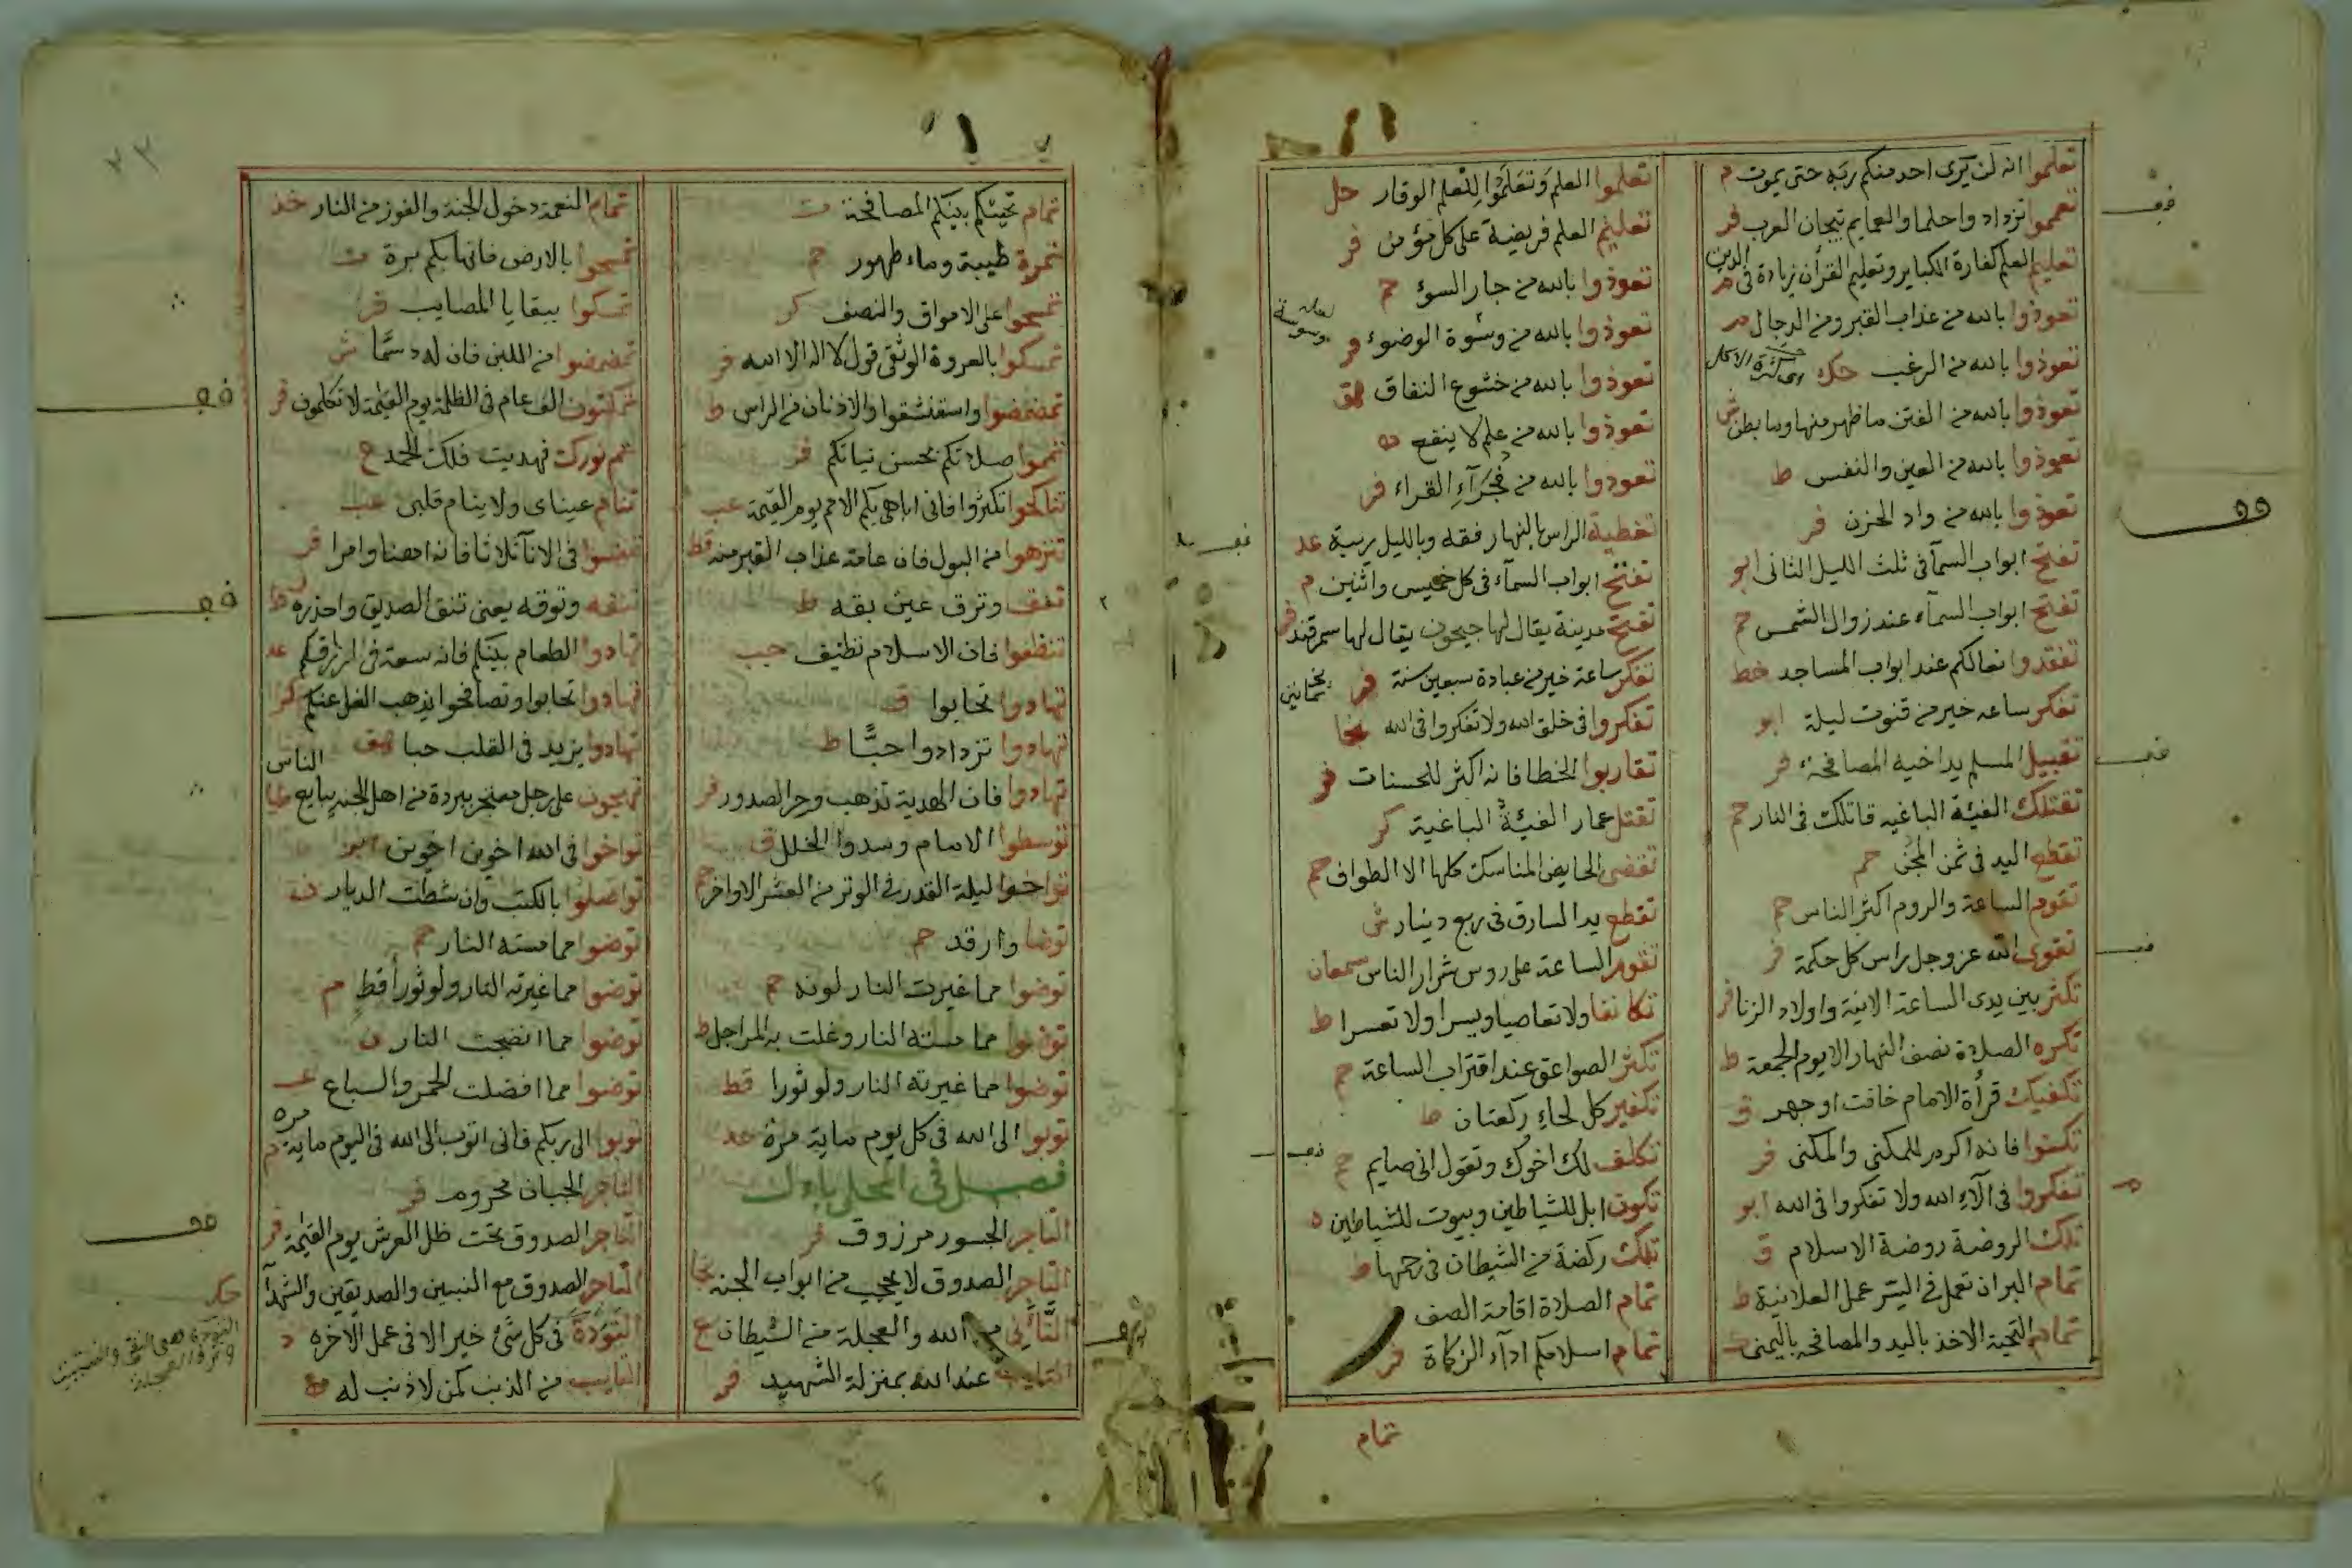 تعلموا انه لن يرى احد منكم ربه حتى يموت م
تعمموا تزداد واحلما والعمايم تيجان العرب فر
تعليم العلم كفارة الكباير وتعليم القرأن زيادة فى الدين
تعوذوا بالله من عذاب القبر ومن الدجال
تعوذوا بالله من الرغب حك
تعوذوا بالله من الفتن ما ظهر منها وما بطن ش
تعوذوا بالله من العين والنفس ط
تعوذوا بالله من واد الحزن فر
تفتح ابواب السمآ فى ثلث الليل الثانى ابو
تفتح ابواب السمآء عند زوال الشمس حم
تفقدوا نعالكم عند ابواب المساجد خط
تفكر ساعه خير من قنوت ليلة ابو
تقبيل المسلم يد اخيه المصافحة فر
تقتلك الفيئة الباغيه قاتلك فى النار حم
تقطع اليد فى ثمن المجن حم
تقوم الساعة والروم اكثر الناس حم
تقوى الله عز وجل راس كل حكمة فر
تكثر بين يدى الساعة الابنية واولاد الزنا فر
تكره الصلاة نصف النهار الا يوم الجمعة ط
تكفيك قرأة الامام خافت او جهر ق
تكنوا فانه اكرم للمكنى والمكنى فر
تفكروا فى الآء الله ولا تفكروا فى الله ابو
تلك الروضة روضة الاسلام ق
تمام البر ان تعمل فى السر عمل العلانية ط
تمام التحية الاخذ باليد والمصافحه باليمنى
تعلموا العلم وتعلموا للعلم الوقار حل
تعليم العلم فريضة على كل مؤمن فر
تعوذوا بالله من جار السوء حم
تعوذوا بالله من وسوة الوضوء فر
لعله وسوسة
تعوذوا بالله من خشوع النفاق هق
تعوذوا بالله من علم لا ينفع ه
تعوذوا بالله من فجرآء القراء فر
تغطية الراس بالنهار فقه وبالليل ريبة عد
تفتح ابواب السمآء فى كل خميس واثنين م
تفتح مدينة يقال لها جيحون يقال لها سمرقند
تفكر ساعة خير من عبادة سبعين سنة فر
تفكروا فى خلق الله ولا تفكروا فى الله
تقاربوا الخطا فانه اكثر للحسنات فر
تقتل عمار الفيئة الباغية كر
تقضى الحايض المناسك كلها الا الطواف حم
تقطع يد السارق فى ربع دينار ش
تقوم الساعة على روس شرار الناس سمعان
تكاتفا ولا تعاصيا ويسرا ولا تعسرا ط
تكثر الصواعق عند اقتراب الساعة حم
تكفير كل لحاء ركعتان ط
تكلف لك اخوك وتقول انى صايم حم
تكون ابل للشياطين وبيوت للشياطين ه
تلك ركضة من الشيطان فى رحمها ط
تمام الصلاة اقامة الصف
تمام اسلامكم ادآء الزكاة فر
تمام
تمام تحيتكم بينكم المصافحة ت
تمرة طيبة وماء طهور حم
تمسحوا على الامواق والنصف كر
تمسكوا بالعروة الوثقى قول لا اله الا الله فر
تمضمضوا واستنشقوا والاذنان من الراس ط
تمموا صلاتكم بحسن نياتكم فر
تناكحوا تكثروا فانى اباهى بكم الامم يوم القيمة عب
تنزهوا من البول فان عامة عذاب القبر منه قط
تنق وترق عين بقه ط
تنظفوا فان الاسلام نظيف حب
تهادوا تحابوا ق
تهادوا تزدادوا حبًّا ط
تهادوا فان الهدية تذهب وحر الصدور فر
توسطوا الامام وسدوا الخلل ق
تواخوا ليلة القدر فى الوتر من العشر الاواخر حم
توضا وارقد حم
توضوا مما غيرت النار لونه حم
توضوا مما مسته النار وغلت به المراجل ط
توضوا مما غيرته النار ولو ثورا قط
توبوا الى الله فى كل يوم ماية مرة عد
فصل فى المحلى بال
التاجر الجسور مرزوق فر
التاجر الصدوق لا يحجب من ابواب الجنة نجا
التَّأَنِّى من الله والعجلة من الشيطان ع
التايب عند الله بمنزلة الشهيد فر
٢٣
تمام النعمة دخول الجنة والفوز من النار خذ
تمسحوا بالارض فانها بكم برة ت
تمسكوا ببقايا المصايب فر
تمضمضوا من اللبن فان له دسمًا ش
تمكثون الف عام فى الظلمة يوم القيمة لا تكلمون فر
تم نورك فهديت فلك الحمد ع
تنام عيناى ولا ينام قلبى عب
تنفسوا فى الانآ ثلاثا فانه اهنا وامرا فر
تنقه وتوقه يعنى تنق الصديق واحذره ط
تهادوا الطعام بينكم فانه سعة فى ارزاقكم عد
تهادوا تحابوا وتصافحوا يذهب الغل عنكم كر
تهادوا يزيد فى القلب حبا هق
تهيجون على رجل معتجر ببردة من اهل الجنه يبايع الناس طيا
تواخوا فى الله اخوين اخوين ابو
تواصلوا بالكتب وان شطت الديار فه
توضوا مما مسته النار حم
توضوا مما غيرته النار ولو ثور أقط م
توضوا مما انضجت النار ن
توضوا مما افضلت الحمر والسباع عب
توبوا الى ربكم فانى اتوب الى الله فى اليوم ماية مره م
التاجر الجبان محروم فر
التاجر الصدوق تحت ظل العرش يوم القيمة فر
التاجر الصدوق مع النبيين والصديقين والشهدآ حك
التؤدة فى كل شئ خير الا فى عمل الآخره د
التايب من الذنب كمن لا ذنب له ه